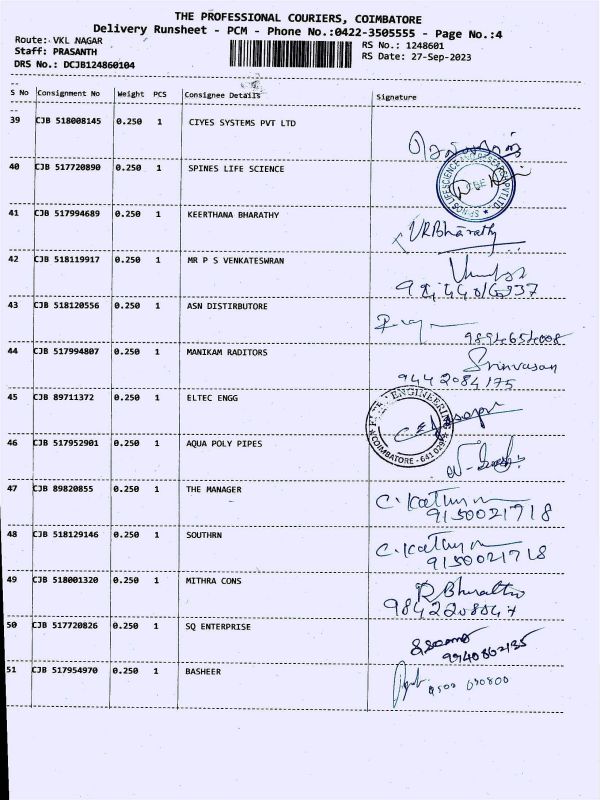 THE PROFESSIONAL COURIERS, COIMBATORE
Delivery Runsheet - PCM - Phone No.:0422-3505555 - Page No.:4
Route: VKL NAGAR RS No.: 1248601
Staff: PRASANTH RS Date: 27-Sep-2023
DRS No.: DCJB124860104
S No Consignment No Weight PCS Consignee Details Signature
39 CJB 518008145 0.250 1 CIYES SYSTEMS PVT LTD
40 CJB 517720890 0.250 1 SPINES LIFE SCIENCE
41 CJB 517994689 0.250 1 KEERTHANA BHARATHY VRBharathy
42 CJB 518119917 0.250 1 MR P S VENKATESWRAN
43 CJB 518120556 0.250 1 ASN DISTIRBUTORE
9894654008
44 CJB 517994807 0.250 1 MANIKAM RADITORS Srinvasan
9442084175
45 CJB 89711372 0.250 1 ELTEC ENGG
ENGINEERING
COIMBATORE - 641 029
46 CJB 517952901 0.250 1 AQUA POLY PIPES
47 CJB 89820855 0.250 1 THE MANAGER
9150021718
48 CJB 518129146 0.250 1 SOUTHRN
9150021718
49 CJB 518001320 0.250 1 MITHRA CONS
50 CJB 517720826 0.250 1 SQ ENTERPRISE
51 CJB 517954970 0.250 1 BASHEER